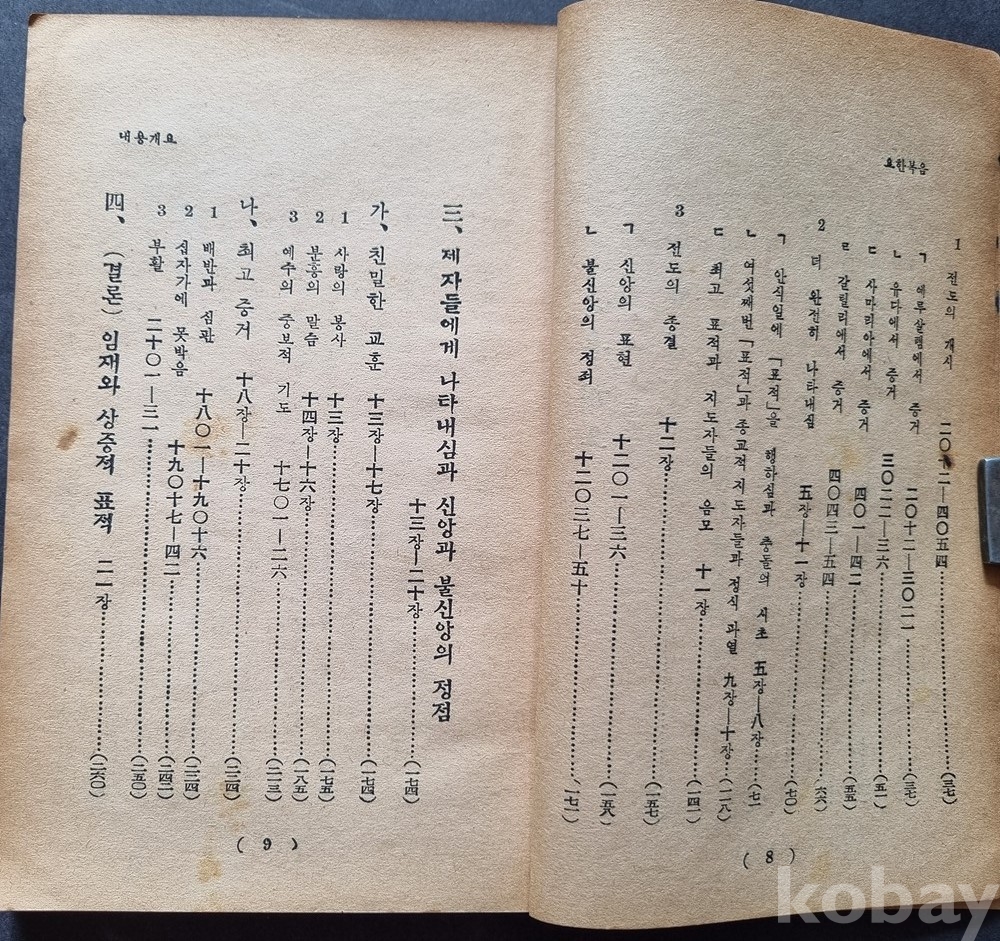 요한복음
1 전도의 개시 二〇十二—四〇五四 (三七)
ㄱ 예루살렘에서 증거 二〇十二—三〇二一 (三七)
ㄴ 유다에서 증거 三〇二二—三六 (五一)
ㄷ 사마리아에서 증거 四〇一—四二 (五五)
ㄹ 갈릴리에서 증거 四〇四三—五四 (六六)
2 더 완전히 나타내심 五장—十一장 (七〇)
ㄱ 안식일에 「표적」을 행하심과 충돌의 시초 五장—八장
ㄴ 여섯째번 「표적」과 종교적 지도자들과 정식 과열 九장—十장 (一一八)
ㄷ 최고 표적과 지도자들의 음모 十一장 (一四一)
3 전도의 종결 十二장 (一五七)
ㄱ 신앙의 표현 十二〇一—三六 (一五八)
ㄴ 불신앙의 정죄 十二〇三七—五十 (一七一)
( 8 )
내용개요
三、제자들에게 나타내심과 신앙과 불신앙의 정점
十三장—二十장 (一七四)
가、친밀한 교훈 十三장—十七장 (一七四)
1 사랑의 봉사 十三장 (一七五)
2 분흥의 말슴 十四장—十六장 (一八五)
3 예수의 중보적 기도 十七〇一—二六 (二一三)
나、최고 증거 十八장—二十장 (二二四)
1 배반과 심판 十八〇一—十九〇十六 (二二四)
2 십자가에 못박음 十九〇十七—四二 (二四二)
3 부활 二十〇一—三一 (二五〇)
四、(결론) 임재와 상증적 표적 二一장 (二六〇)
( 9 )
kobay